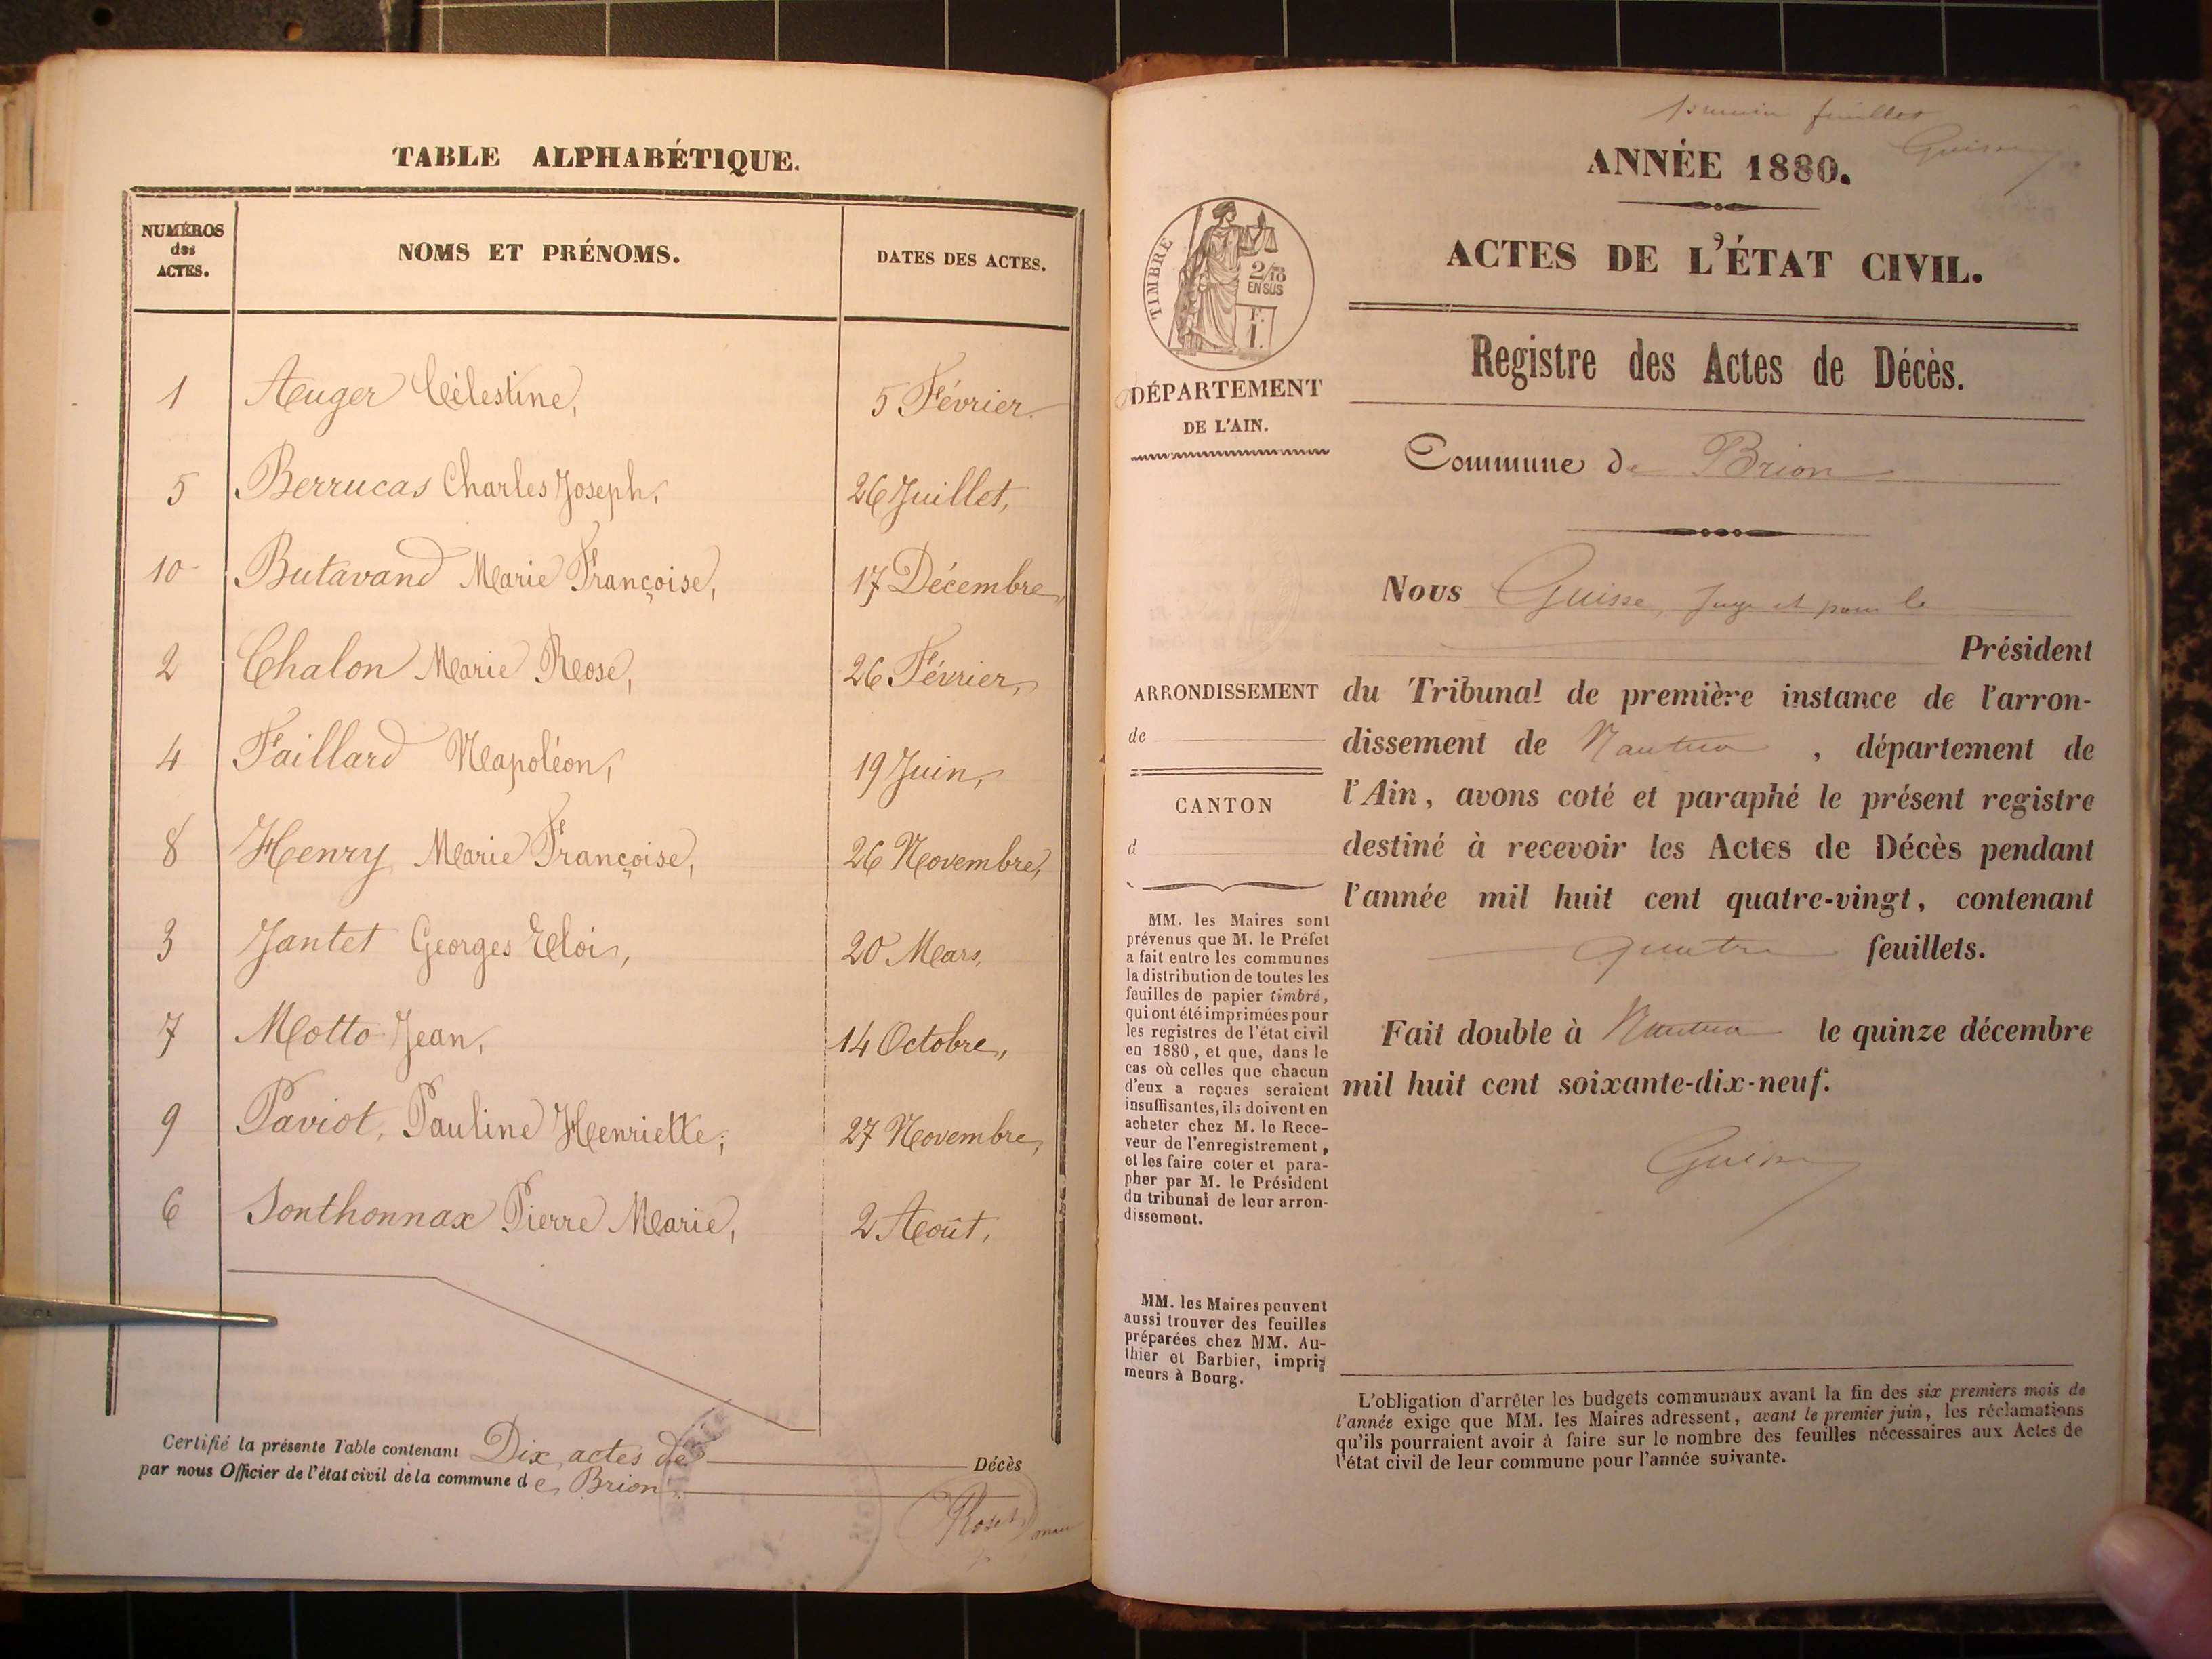 TABLE ALPHABÉTIQUE.
NUMÉROS
des
ACTES.
NOMS ET PRÉNOMS.
DATES DES ACTES.
1 Auger Célestine, 5 Février.
5 Berrucas Charles Joseph, 26 Juillet,
10 Butavand Marie Françoise, 17 Décembre,
2 Chalon Marie Rose, 26 Février,
4 Faillard Napoléon, 19 Juin,
8 Henry Marie Françoise, 26 Novembre,
3 Jantet Georges Eloi, 20 Mars,
7 Motto Jean, 14 Octobre,
9 Paviot, Pauline Henriette, 27 Novembre,
6 Sonthonnax Pierre Marie, 2 Août,
Certifié la présente Table contenant Dix actes de Décès
par nous Officier de l'état civil de la commune de Brion
feuillet
Guisse
ANNÉE 1880.
ACTES DE L'ÉTAT CIVIL.
TIMBRE
2/10
EN SUS
1 F.
Registre des Actes de Décès.
DÉPARTEMENT
DE L'AIN.
Commune de Brion
Nous Guisse, Juge et pour le
Président
ARRONDISSEMENT
de
CANTON
d
du Tribunal de première instance de l'arron-
dissement de Nantua, département de
l'Ain, avons coté et paraphé le présent registre
destiné à recevoir les Actes de Décès pendant
l'année mil huit cent quatre-vingt, contenant
quatre feuillets.
Fait double à Nantua le quinze décembre
mil huit cent soixante-dix-neuf.
Guisse
MM. les Maires sont
prévenus que M. le Préfet
a fait entre les communes
la distribution de toutes les
feuilles de papier timbré,
qui ont été imprimées pour
les registres de l'état civil
en 1880, et que, dans le
cas où celles que chacun
d'eux a reçues seraient
insuffisantes, ils doivent en
acheter chez M. le Rece-
veur de l'enregistrement,
et les faire coter et para-
pher par M. le Président
du tribunal de leur arron-
dissement.
MM. les Maires peuvent
aussi trouver des feuilles
préparées chez MM. Au-
thier et Barbier, impri-
meurs à Bourg.
L'obligation d'arrêter les budgets communaux avant la fin des six premiers mois de
l'année exige que MM. les Maires adressent, avant le premier juin, les réclamations
qu'ils pourraient avoir à faire sur le nombre des feuilles nécessaires aux Actes de
l'état civil de leur commune pour l'année suivante.